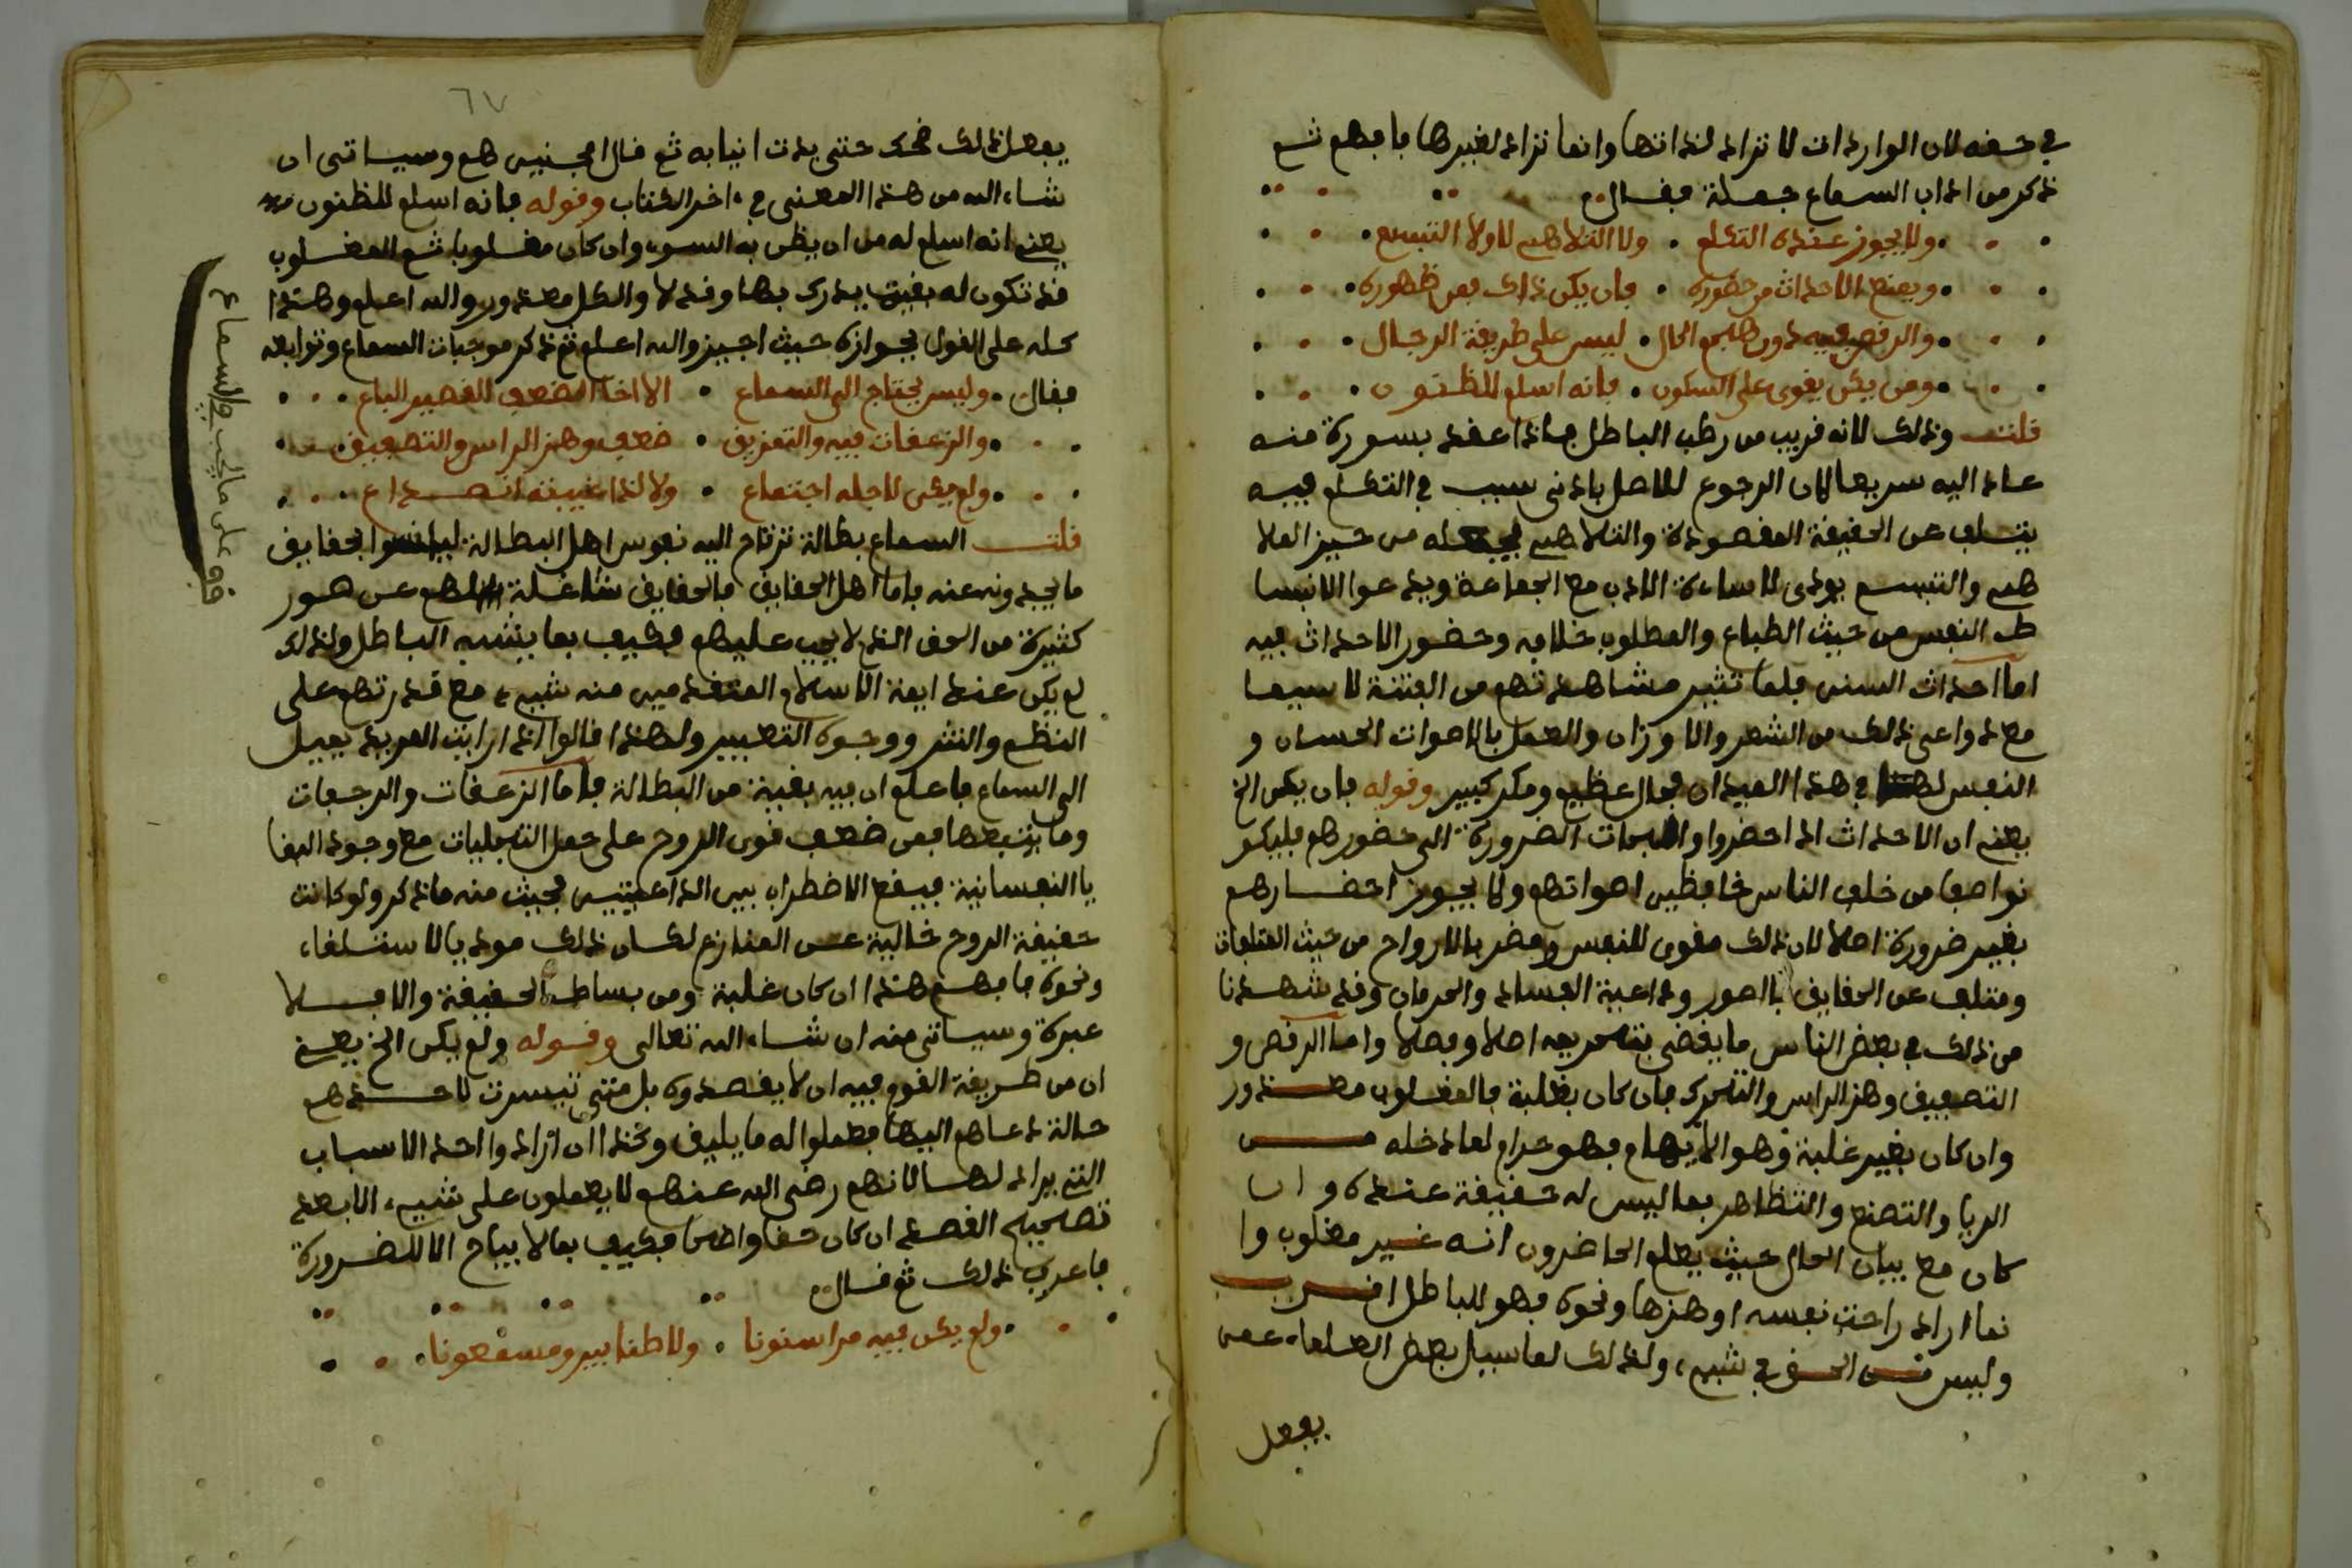 في حقه لان الواردات لا تراد لذاتها وانما تراد لغيرها فافهم ثم
ذكر من اداب السماع جملة فقال
ولا يجوز عنده التكلم ولا التلاهي لا ولا التبسم
ويمنع الاحداث من حضوره فان يكن ذاك فمن ظهوره
والرقص فيه دون هجم الحال ليس على طريقة الرجال
ومن يكن يقوى على السكون فانه اسلم للظنون
قلت وذلك لانه قريب من رطب الباطل فاذا عقد بسورة منه
عاد اليه سريعا لان الرجوع للاصل بادنى سبب في التكلم فيه
يتلف عن الحقيقة المقصودة والتلاهي من حيز الملا
هي والتبسم يودى لاساءة الادب مع الجماعة ويدعوا الانبسا
ط النفس من حيث الطباع والمطلوب خلافه وحضور الاحداث فيه
اما احداث السنى فلما تثير مشاهدتهم من الفتنة لا سيما
مع دواعى ذلك من الشعر والاوزان والعمل بالاصوات الحسان و
النفس لها في هذا الميدان مجال عظيم ومكر كبير وقوله فان يكن الخ
يعنى ان الاحداث اذا حضروا او الجات الضرورة الى حضورهم فليكو
نوا صفا من خلف الناس خافظين اصواتهم ولا يجوز احضارهم
بغير ضرورة اصلا لان ذلك مقوى للنفس ومضر بالارواح من حيث التعلقات
ومتلف عن الحقايق بالصور وداعية الفساد والحرمان وقد شهدنا
من ذلك في بعض الناس ما يقضى بتحريمه اصلا وفصلا واما الرقص و
التصفيق وهز الراس والتحرك فان كان بغلبة فالمغلوب معذور
وان كان بغير غلبة وهو الايهام فهو حرام لما دخله مـــن
الريا والتصنع والتظاهر بما ليس له حقيقة عنده وان
كان مع بيان الحال حيث يعلم الحاضرون انه غير مغلوب وا
نما اراد راحت نفسه او هزها ونحوه فهو للباطل اقرب
وليس من الحق في شيء ولذلك لما سيل بعض العلماء عمن
يفعل
٦٧
يفعل ذلك ضحك حتى بدت انيابه ثم قال امجنيين هم وسياتى ان
شاء الله من هذا المعنى في ءاخر الكتاب وقوله فانه اسلم للظنون
يعنى انه اسلم له من ان يظن به السوء وان كان مغلوبا ثم المغلوب
قد تكون له بقية يدرك بها وقد لا والكل معذور والله اعلم وهذا
كله على القول بجوازه حيث اجيز والله اعلم ثم ذكر موجبات السماع وتوابعه
فقال وليس يحتاج الى السماع الا اخا الضعف القصير الباع
والزعقات فيه والتمزيق ضعف وهز الراس والتصفيق
ولم يكن لاجله اجتماع ولا لذا غيبته انصداع
قلت السماع بطالة ترتاح اليه نفوس اهل البطالة الحقايق
ما يجدونه عنه فاما اهل الحقايق فالحقايق شاغلة لهم عن صور
كثيرة من الحق الذي لا يجب عليهم فكيف بما يشبه الباطل ولذلك
لم يكن عند ايمة الاسلام المتقدمين منه شيء مع قدرتهم على
النظم والنثر ووجوه التعبير ولهذا قالوا اذا رايت المريد يميل
الى السماع فاعلم ان فيه بقية من البطالة فاما الزعقات والرجعات
وما يتبعها فمن ضعف قوى الروح على حمل التجليات مع وجود البقا
يا النفسانية فيقع الاضطراب بين الداعيتين فجيث منه ما ذكر ولو كانت
حقيقة الروح خالية عن المنازع لكان ذلك موديا للاستلقاء
ونحوه فافهم هذا ان كان غلبة ومن بساط الحقيقة والا فـــلا
عبرة وسياتى منه ان شاء الله تعالى وقوله ولم يكن الخ يعنى
ان من طريقة القوم فيه ان لا يقصدوه بل متى تيسرت لاحدهم
حالة دعاهم اليها فعملوا له ما يليق وكذا ان اراد واحد الاسباب
التي يراد لها لانهم رضى الله عنهم لا يعملون على شيء الا بعد
تصحيح القصد ان كان حقا واضحا فكيف بما لا يباح الا للضرورة
فاعرف ذلك ثم قال
ولم يكن فيه مراسنونا ولا طنابير ومسمعونا
قف على ما يجب في السماع